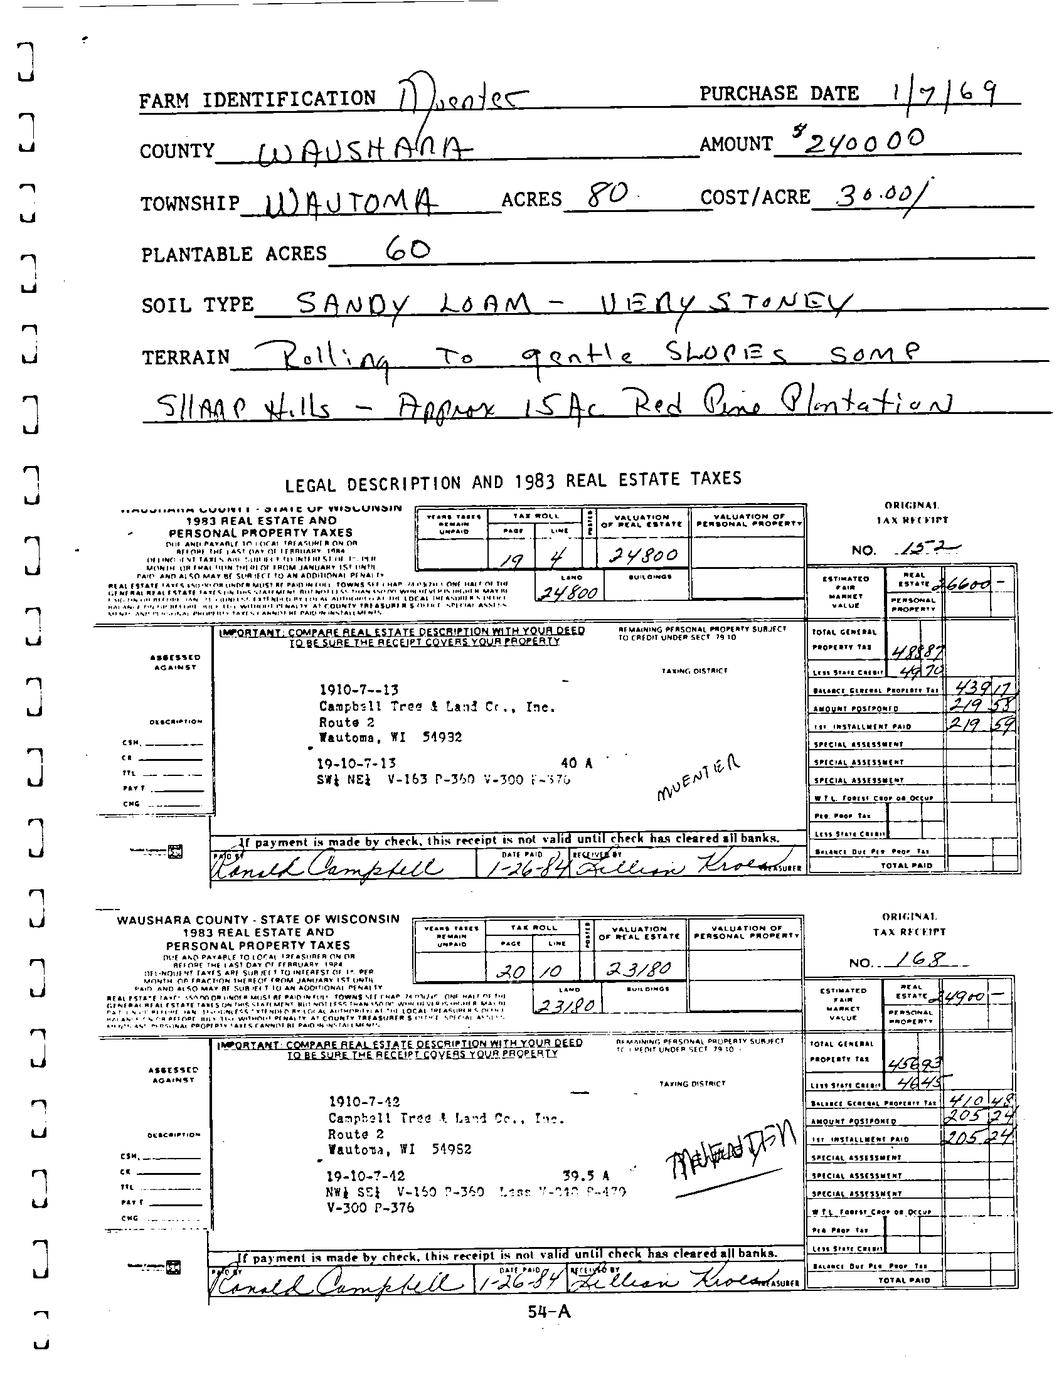 FARM IDENTIFICATION Muenter PURCHASE DATE 1/7/69
COUNTY WAUSHARA AMOUNT $240000
TOWNSHIP WAUTOMA ACRES 80 COST/ACRE 30.00/
PLANTABLE ACRES 60
SOIL TYPE SANDY LOAM - VERY STONEY
TERRAIN Rolling TO gentle SLOPES SOME
SHARP Hills - Approx 15 Ac Red Pine Plantation
LEGAL DESCRIPTION AND 1983 REAL ESTATE TAXES
WAUSHARA COUNTY - STATE OF WISCONSIN
1983 REAL ESTATE AND
PERSONAL PROPERTY TAXES
DUE AND PAYABLE TO LOCAL TREASURER ON OR
BEFORE THE LAST DAY OF FEBRUARY 1984
YEARS TAXES REMAIN UNPAID
TAX ROLL
PAGE LINE
19 4
POSTED
VALUATION OF REAL ESTATE
24800
VALUATION OF PERSONAL PROPERTY
LAND BUILDINGS
24800
ORIGINAL
TAX RECEIPT
NO. 152
IMPORTANT: COMPARE REAL ESTATE DESCRIPTION WITH YOUR DEED
TO BE SURE THE RECEIPT COVERS YOUR PROPERTY
REMAINING PERSONAL PROPERTY SUBJECT
TO CREDIT UNDER SECT 79.10
TAXING DISTRICT
ASSESSED
AGAINST
1910-7--13
Campbell Tree & Land Co., Inc.
Route 2
Wautoma, WI 54982
DESCRIPTION
CSH.
CK
TTL
PAY'T
CHG
19-10-7-13 40 A
SW¼ NE¼ V-163 P-360 V-300 P-376
MUENTER
ESTIMATED FAIR MARKET VALUE
REAL ESTATE 26600-
PERSONAL PROPERTY
TOTAL GENERAL
PROPERTY TAX 488 87
LESS STATE CREDIT 49 70
BALANCE GENERAL PROPERTY TAX 439 17
AMOUNT POSTPONED 219 58
1ST INSTALLMENT PAID 219 59
SPECIAL ASSESSMENT
SPECIAL ASSESSMENT
SPECIAL ASSESSMENT
W T L. FOREST CROP OR OCCUP
PER PROP TAX
LESS STATE CREDIT
BALANCE DUE PER PROP TAX
TOTAL PAID
If payment is made by check, this receipt is not valid until check has cleared all banks.
PAID BY Ronald Campbell DATE PAID 1-26-84 RECEIVED BY Lillian TREASURER
WAUSHARA COUNTY - STATE OF WISCONSIN
1983 REAL ESTATE AND
PERSONAL PROPERTY TAXES
DUE AND PAYABLE TO LOCAL TREASURER ON OR
BEFORE THE LAST DAY OF FEBRUARY 1984
YEARS TAXES REMAIN UNPAID
TAX ROLL
PAGE LINE
20 10
POSTED
VALUATION OF REAL ESTATE
23180
VALUATION OF PERSONAL PROPERTY
LAND BUILDINGS
23180
ORIGINAL
TAX RECEIPT
NO. 168
IMPORTANT: COMPARE REAL ESTATE DESCRIPTION WITH YOUR DEED
TO BE SURE THE RECEIPT COVERS YOUR PROPERTY
REMAINING PERSONAL PROPERTY SUBJECT
TO CREDIT UNDER SECT 79.10
TAXING DISTRICT
ASSESSED
AGAINST
1910-7-42
Campbell Tree & Land Co., Inc.
Route 2
Wautoma, WI 54982
DESCRIPTION
CSH.
CK
TTL
PAY'T
CHG
19-10-7-42 39.5 A
NW¼ SE¼ V-160 P-360 Less
V-300 P-376
MUENTER
ESTIMATED FAIR MARKET VALUE
REAL ESTATE 24900-
PERSONAL PROPERTY
TOTAL GENERAL
PROPERTY TAX 456 93
LESS STATE CREDIT 46 45
BALANCE GENERAL PROPERTY TAX 410 48
AMOUNT POSTPONED 205 24
1ST INSTALLMENT PAID 205 24
SPECIAL ASSESSMENT
SPECIAL ASSESSMENT
SPECIAL ASSESSMENT
W T L. FOREST CROP OR OCCUP
PER PROP TAX
LESS STATE CREDIT
BALANCE DUE PER PROP TAX
TOTAL PAID
If payment is made by check, this receipt is not valid until check has cleared all banks.
PAID BY Ronald Campbell DATE PAID 1-26-84 RECEIVED BY Lillian TREASURER
54-A